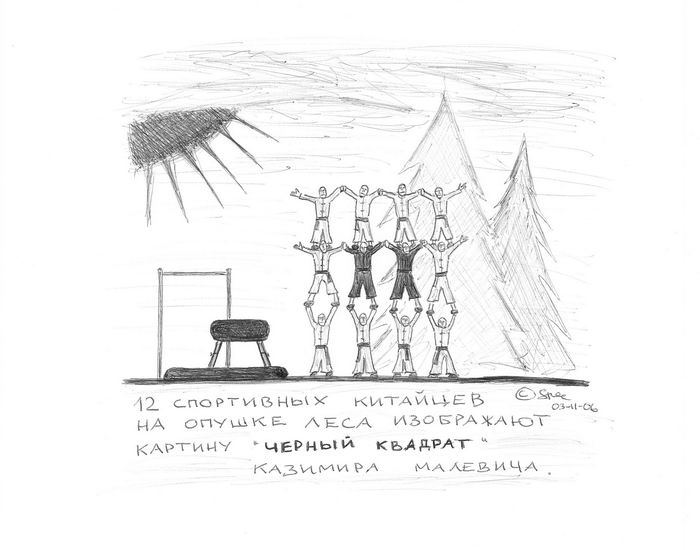 12 СПОРТИВНЫХ КИТАЙЦЕВ
НА ОПУШКЕ ЛЕСА ИЗОБРАЖАЮТ
КАРТИНУ "ЧЕРНЫЙ КВАДРАТ"
КАЗИМИРА МАЛЕВИЧА.
©
03-11-06